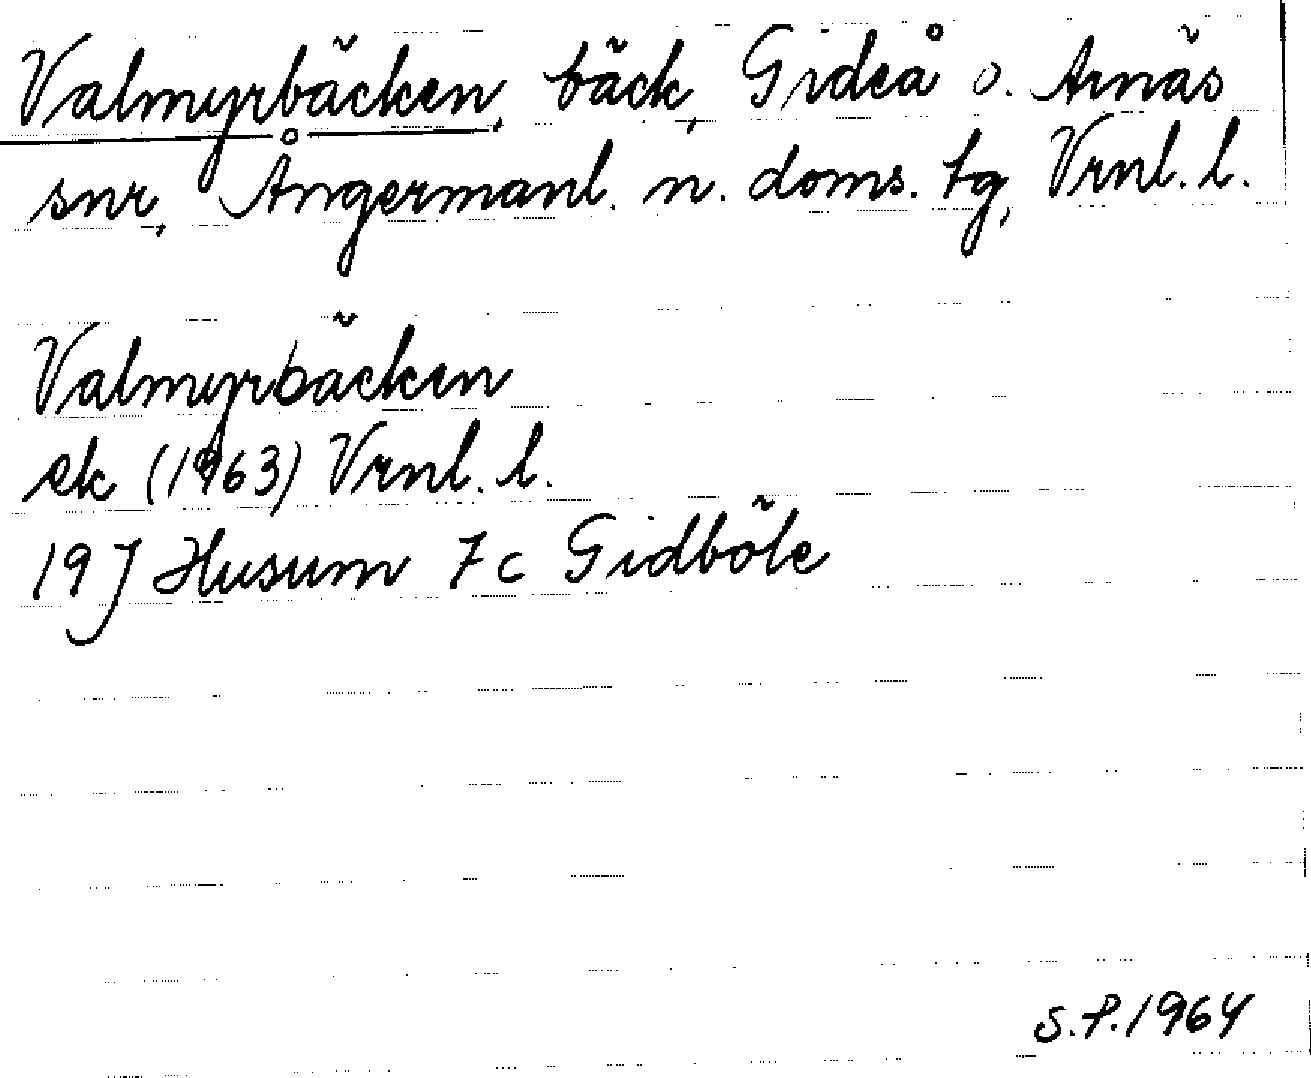 Valmyrbäcken, bäck, Gideå o. Arnäs
snr, Ångermanl. n. doms. tg, Vrnl. l.
Valmyrbäcken
ek (1963) Vrnl. l.
19J Husum 7c Gidböle
S.P. 1964